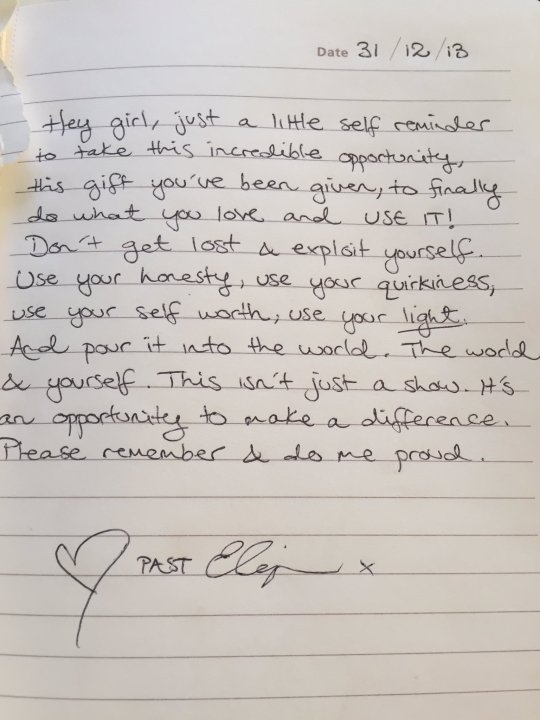 Date 31/12/13
Hey girl, just a little self reminder
to take this incredible opportunity,
this gift you've been given, to finally
do what you love and USE IT!
Don't get lost & exploit yourself.
Use your honesty, use your quirkiness,
use your self worth, use your light.
And pour it into the world. The world
& yourself. This isn't just a show. It's
an opportunity to make a difference.
Please remember & do me proud.
PAST x